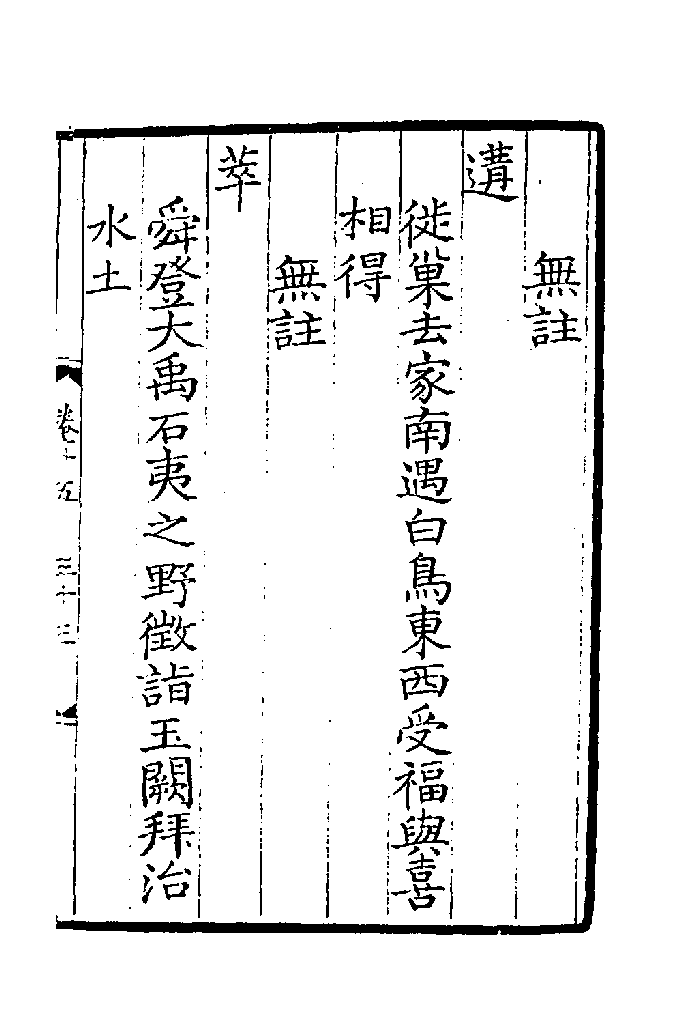 無註
遘
徙巢去家南遇白鳥東西受福與喜
相得
無註
萃
舜登大禹石夷之野徵詣玉闕拜治
水土
卷十五 三十三